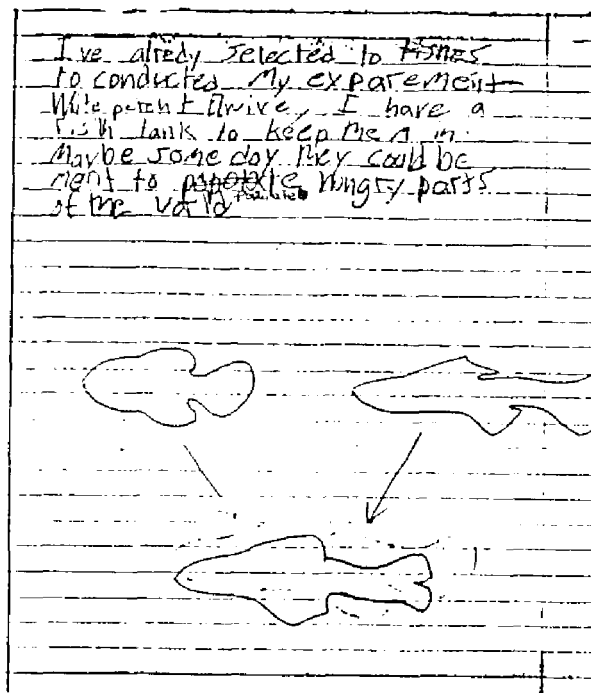 I've alredy selected to fishes
to conducted My experement
While perch I have a
fish tank to keep them in.
Maybe some day they could be
ment to hungry parts
of the world